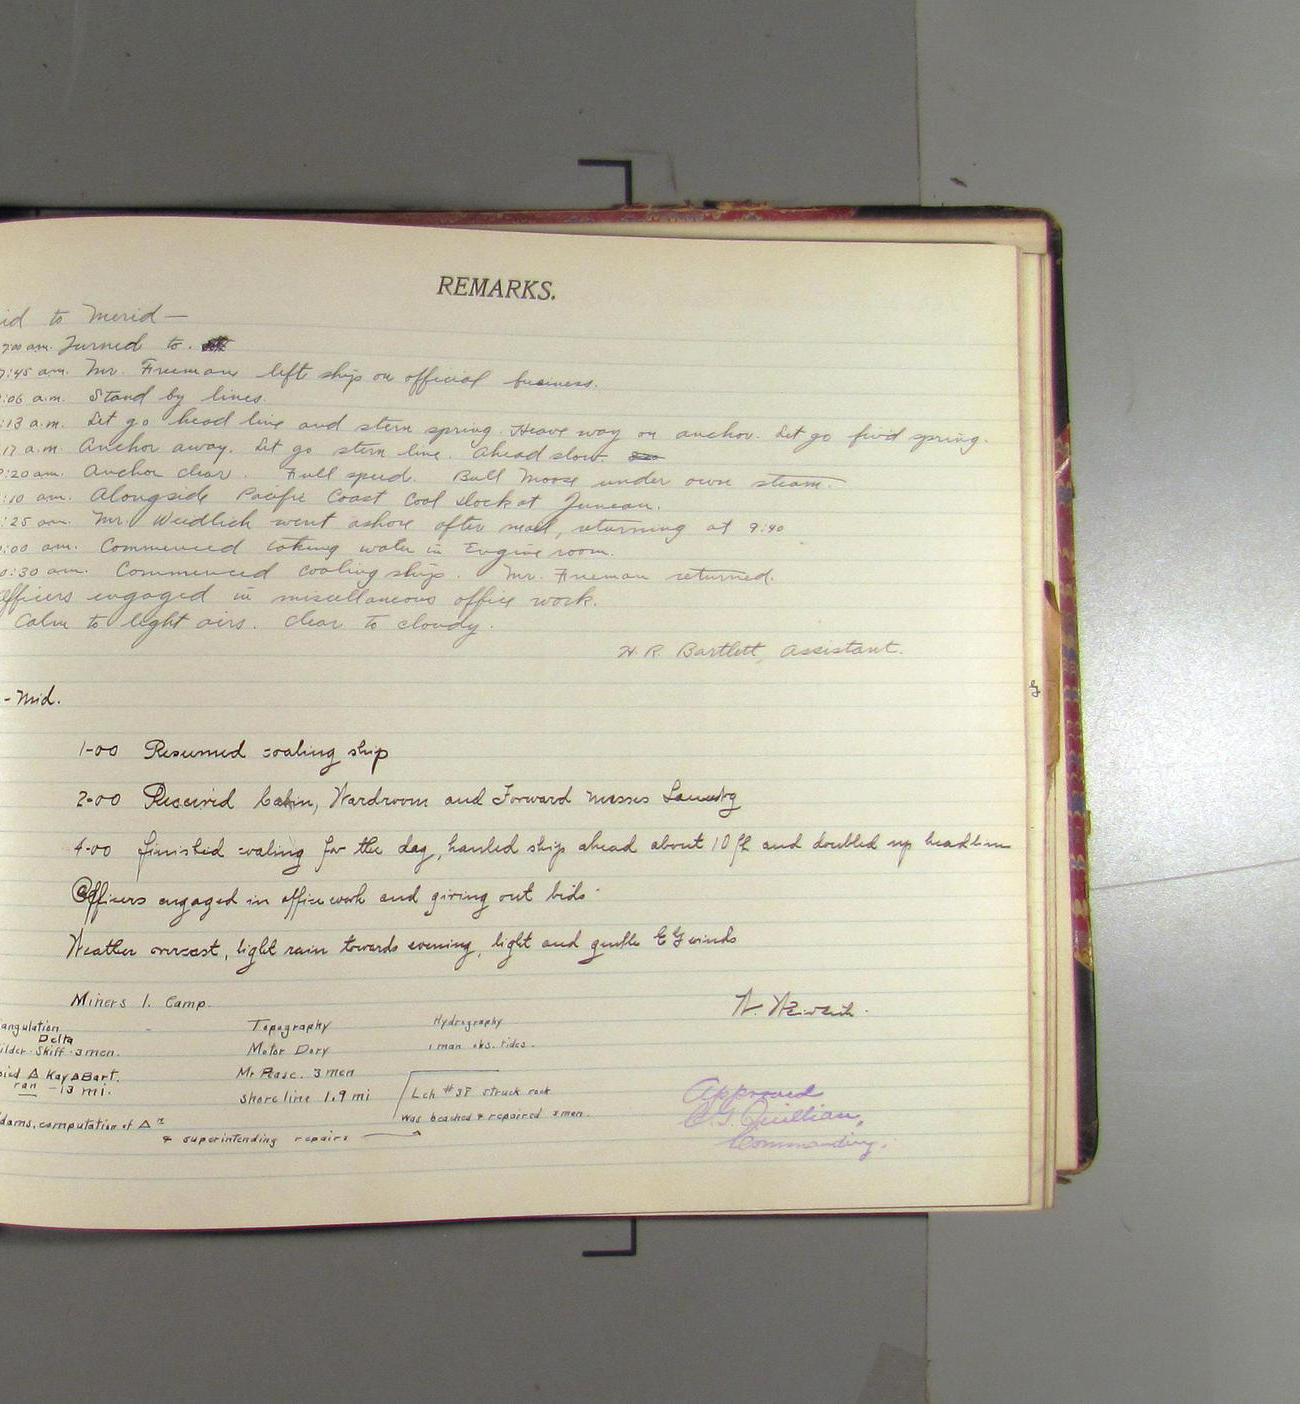 REMARKS.
id to Merid —
7:00 am. Turned to.
7:45 am. Mr. Freeman left ship on official business.
:06 a.m. Stand by lines.
:13 a.m. Let go head line and stern spring. Heave way on anchor. Let go fwd spring.
:17 a.m. Anchor away. Let go stern line. Ahead slow.
:20 am. Anchor clear. Full speed. Bull Moose under own steam.
:10 am. Alongside Pacific Coast Coal Dock at Juneau.
:25 am. Mr. Weidlich went ashore after mail, returning at 9:40
:00 am. Commenced taking water in Engine room.
0:30 am. Commenced coaling ship. Mr. Freeman returned.
Officers engaged in miscellaneous office work.
Calm to light airs. Clear to cloudy.
H. R. Bartlett, Assistant.
- Mid.
1-00 Resumed coaling ship
2-00 Received Cabin, Wardroom and Forward Messes Laundry
4-00 finished coaling for the day, hauled ship ahead about 10 ft and doubled up headline
Officers engaged in office work and giving out bids
Weather overcast, light rain towards evening, light and gentle winds
Miners I. Camp.
W.
angulation Topography Hydrography
Delta
ilder - Skiff - 3 men. Motor Dory 1 man obs. tides.
pied Δ Kay Δ Bart. Mr Pease. 3 men
ran - 13 mi. shore line 1.9 mi Lch #37 struck rock
was beached & repaired 3 men.
dams, computation of Δn
& superintending repairs
Approved
Quillian,
Commanding.